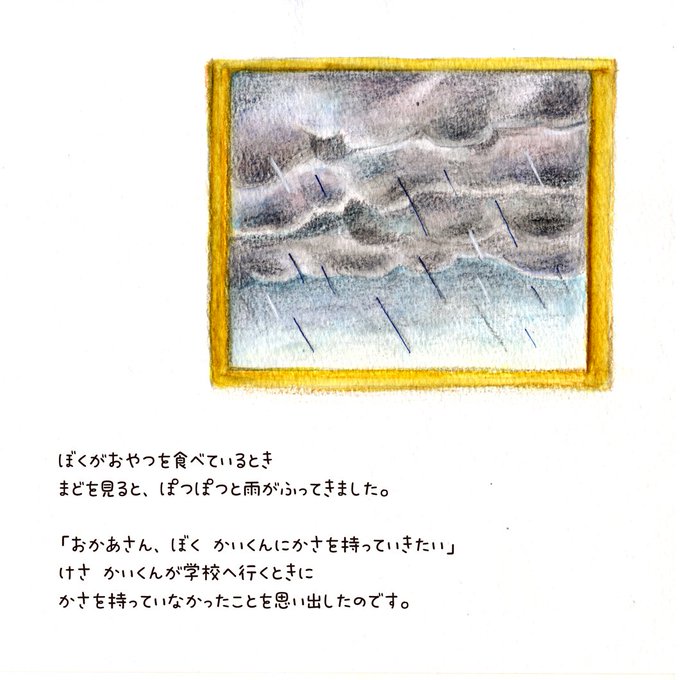 ぼくがおやつを食べているとき
まどを見ると、ぽつぽつと雨がふってきました。
「おかあさん、ぼく かいくんにかさを持っていきたい」
けさ かいくんが学校へ行くときに
かさを持っていなかったことを思い出したのです。